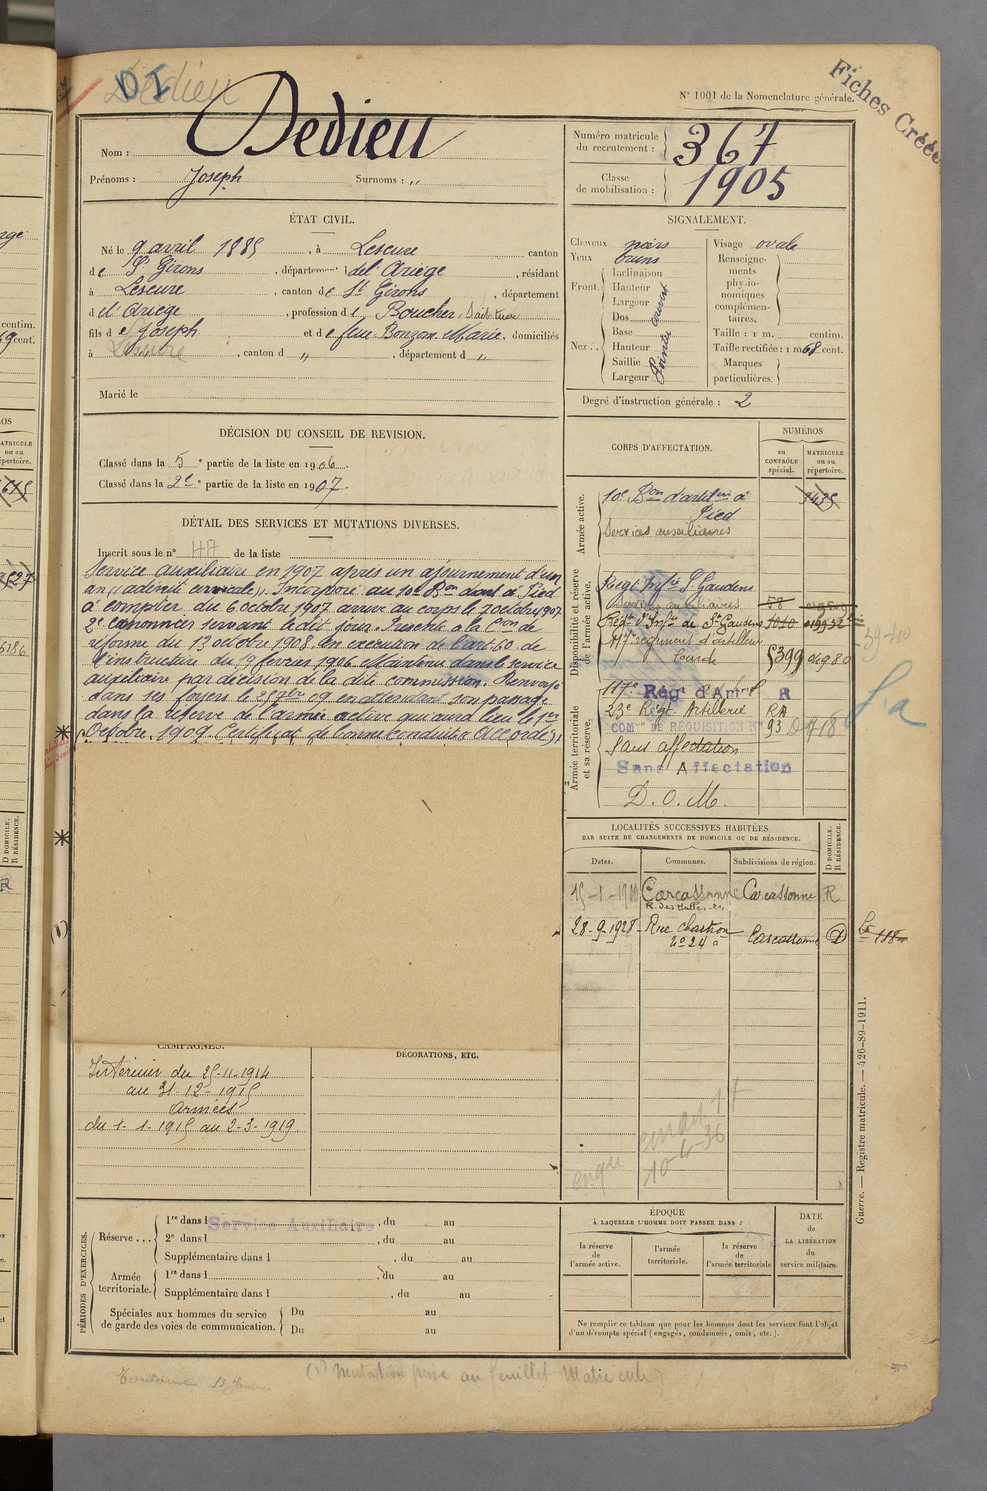 Dedieu
DI
N° 1001 de la Nomenclature générale.
Fiches Créées
Nom : Dedieu
Prénoms : Joseph Surnoms : "
Numéro matricule du recrutement : 367
Classe de mobilisation : 1905
ÉTAT CIVIL.
Né le 9 avril 1885, à Lescure canton
de St Girons, département de l'Ariège, résidant
à Lescure, canton de St Girons, département
d l'Ariège, profession de Boucher
fils de Joseph et de feue Bonzon Marie, domiciliés
à Lescure, canton d ", département d "
Marié le
SIGNALEMENT.
Cheveux noirs
Yeux bruns
Front
Inclinaison
Hauteur
Largeur
Nez
Dos
Base
Hauteur
Saillie
Largeur
Visage ovale
Renseignements physionomiques complémentaires.
Taille : 1 m. centim.
Taille rectifiée : 1 m 68 cent.
Marques particulières.
Degré d'instruction générale : 2
DÉCISION DU CONSEIL DE REVISION.
Classé dans la 5e partie de la liste en 1906.
Classé dans la 2e partie de la liste en 1907.
DÉTAIL DES SERVICES ET MUTATIONS DIVERSES.
Inscrit sous le n° de la liste
Service auxiliaire en 1907 après un ajournement d'un
an (( adénite cervicale )). Incorporé au 10e Bon d'art à Pied
à compter du 6 octobre 1907 arrivé au corps le 7 octobre 1907
2e canonnier servant le dit jour. Présenté à la Con de
réforme du 13 octobre 1908 en exécution de l'art 60 de
l'instruction du 19 février 1906. Maintenu dans le service
auxiliaire par décision de la dite commission. Renvoyé
dans ses foyers le 25 7bre 09 en attendant son passage
dans la réserve de l'armée active qui aura lieu le 1er
Octobre 1909 Certificat de bonne conduite Accordé
CORPS D'AFFECTATION.
NUMÉROS
au CONTRÔLE spécial.
MATRICULE ou au répertoire.
Armée active.
10e Bon d'artilrie à Pied
Services auxiliaires
Disponibilité et réserve de l'armée active.
Régt Infrie St Gaudens
Services auxiliaires 58
Régt d'Infie de St Gaudens 1010
117e régiment d'artillerie lourde 5399
Armée territoriale et sa réserve.
117e Régt d'Artie R
23e Régt Artillerie RA
COMon DE RÉQUISITION N° 93
Sans affectation
Sans Affectation
D. O. M.
Sa
LOCALITÉS SUCCESSIVES HABITÉES
PAR SUITE DE CHANGEMENTS DE DOMICILE OU DE RÉSIDENCE.
Dates. Communes. Subdivisions de région. D DOMICILE. R RÉSIDENCE.
15-1-1910 Carcassonne Carcassonne R
R. des Halles
28-9-1928 Rue Chartran n° 24 Carcassonne D
CAMPAGNES.
Intérieur du 25-11-1914
au 31-12-1915
Armées
du 1-1-1915 au 2-3-1919
DÉCORATIONS, ETC.
10-6-36
Guerre. — Registre matricule. — 426-89-1911.
PÉRIODES D'EXERCICES.
Réserve
1re dans l Service Auxiliaire, du au
2e dans l, du au
Supplémentaire dans l, du au
Armée territoriale.
1re dans l, du au
Supplémentaire dans l, du au
Spéciales aux hommes du service de garde des voies de communication.
Du au
Du au
ÉPOQUE
À LAQUELLE L'HOMME DOIT PASSER DANS :
la réserve de l'armée active.
l'armée territoriale.
la réserve de l'armée territoriale
DATE de LA LIBÉRATION du service militaire.
Ne remplir ce tableau que pour les hommes dont les services font l'objet
d'un décompte spécial (engagés, condamnés, omis, etc.).
(1) Mutation sur au feuillet Matricule)